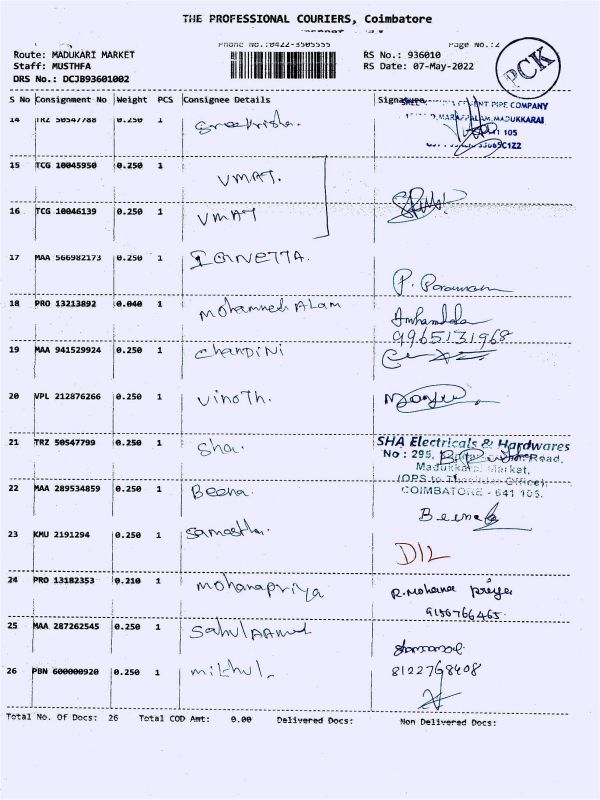 THE PROFESSIONAL COURIERS, Coimbatore
Phone No.:0422-3505555 Page No.:2
Route: MADUKARI MARKET RS No.: 936010
Staff: MUSTHFA RS Date: 07-May-2022
DRS No.: DCJB93601002
PCK
S No Consignment No Weight PCS Consignee Details Signature
CEMENT PIPE COMPANY
MADUKKARAI
105
14 TRZ 50547788 0.250 1 Sreekrisha.
15 TCG 10045950 0.250 1 VMAT.
16 TCG 10046139 0.250 1 VMAT
17 MAA 566982173 0.250 1
P.
18 PRO 13213892 0.040 1 Mohammed Alam
9965131968
19 MAA 941529924 0.250 1 Chandini
20 VPL 212876266 0.250 1 Vinoth.
21 TRZ 50547799 0.250 1 Sha.
SHA Electricals & Hardwares
No : 295, Road,
Madukkarai Market,
(OPS to Thasildar Office),
COIMBATORE - 641 105.
22 MAA 289534859 0.250 1 Beena.
Beena
23 KMU 2191294 0.250 1
DIL
24 PRO 13182353 0.210 1 Mohanapriya
R.Mohana Priya
9150766465.
25 MAA 287262545 0.250 1
8122768408
26 PBN 600000920 0.250 1 Mithul.
Total No. Of Docs: 26 Total COD Amt: 0.00 Delivered Docs: Non Delivered Docs: